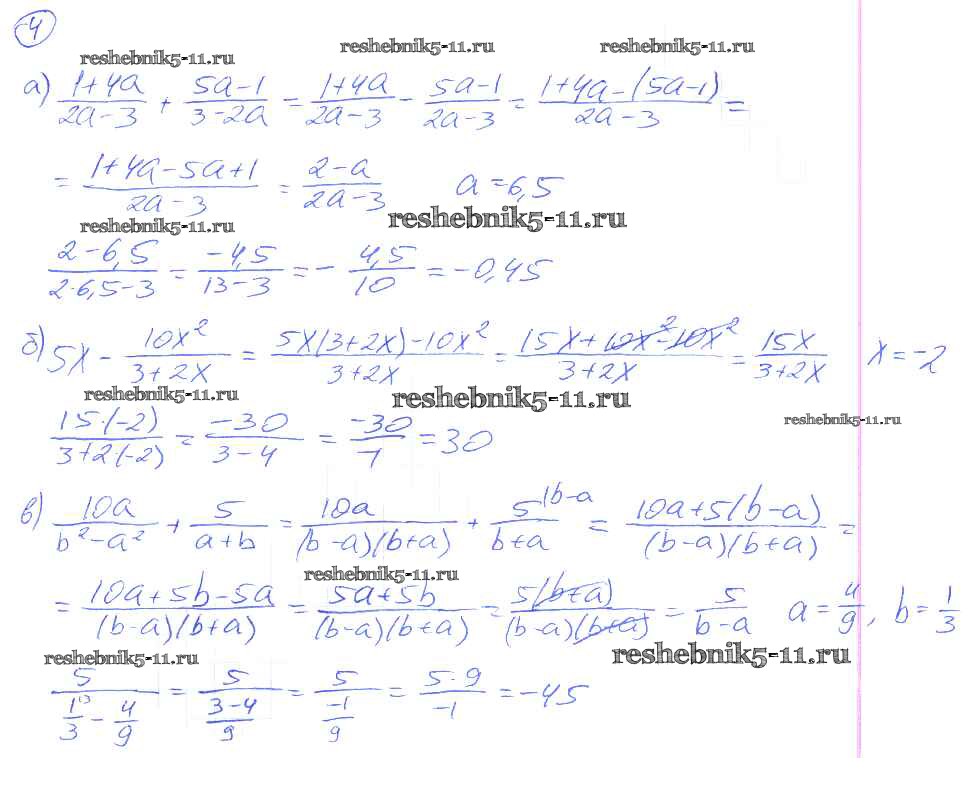 4
reshebnik5-11.ru reshebnik5-11.ru reshebnik5-11.ru
а) (1+4a)/(2a-3) + (5a-1)/(3-2a) = (1+4a)/(2a-3) - (5a-1)/(2a-3) = (1+4a-(5a-1))/(2a-3) =
= (1+4a-5a+1)/(2a-3) = (2-a)/(2a-3) a=6,5
reshebnik5-11.ru reshebnik5-11.ru
(2-6,5)/(2·6,5-3) = (-4,5)/(13-3) = - 4,5/10 = -0,45
б) 5x - 10x²/(3+2x) = (5x(3+2x)-10x²)/(3+2x) = (15x+10x²-10x²)/(3+2x) = 15x/(3+2x) x=-2
reshebnik5-11.ru reshebnik5-11.ru reshebnik5-11.ru
(15·(-2))/(3+2·(-2)) = (-30)/(3-4) = (-30)/(-1) = 30
в) 10a/(b²-a²) + 5/(a+b) = 10a/((b-a)(b+a)) + 5/(b+a) |b-a = (10a+5(b-a))/((b-a)(b+a)) =
reshebnik5-11.ru
= (10a+5b-5a)/((b-a)(b+a)) = (5a+5b)/((b-a)(b+a)) = 5(b+a)/((b-a)(b+a)) = 5/(b-a) a=4/9, b=1/3
reshebnik5-11.ru reshebnik5-11.ru
5/(1/3 |3 - 4/9) = 5/((3-4)/9) = 5/(-1/9) = (5·9)/(-1) = -45